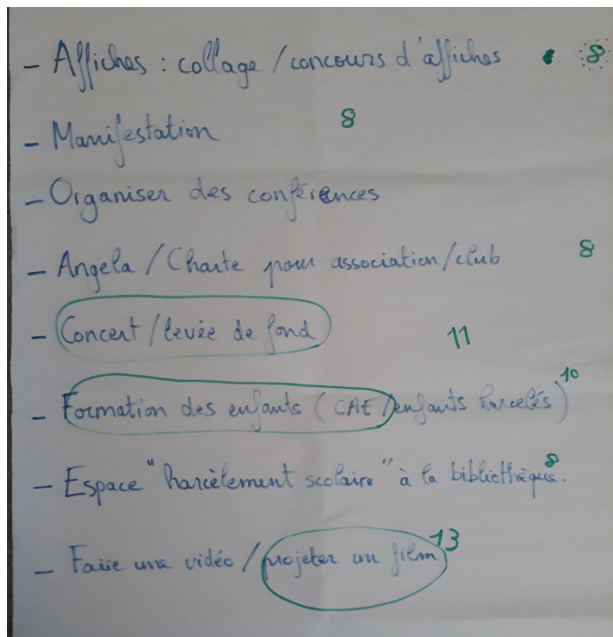 - Affiches : collage / concours d'affiches • 8
- Manifestation 8
- Organiser des conférences
- Angela / Charte pour association/club 8
- Concert / levée de fond 11
- Formation des enfants (CAE / enfants harcelés) 10
- Espace "harcèlement scolaire" à la bibliothèque. 8
- Faire une vidéo / projeter un film 13